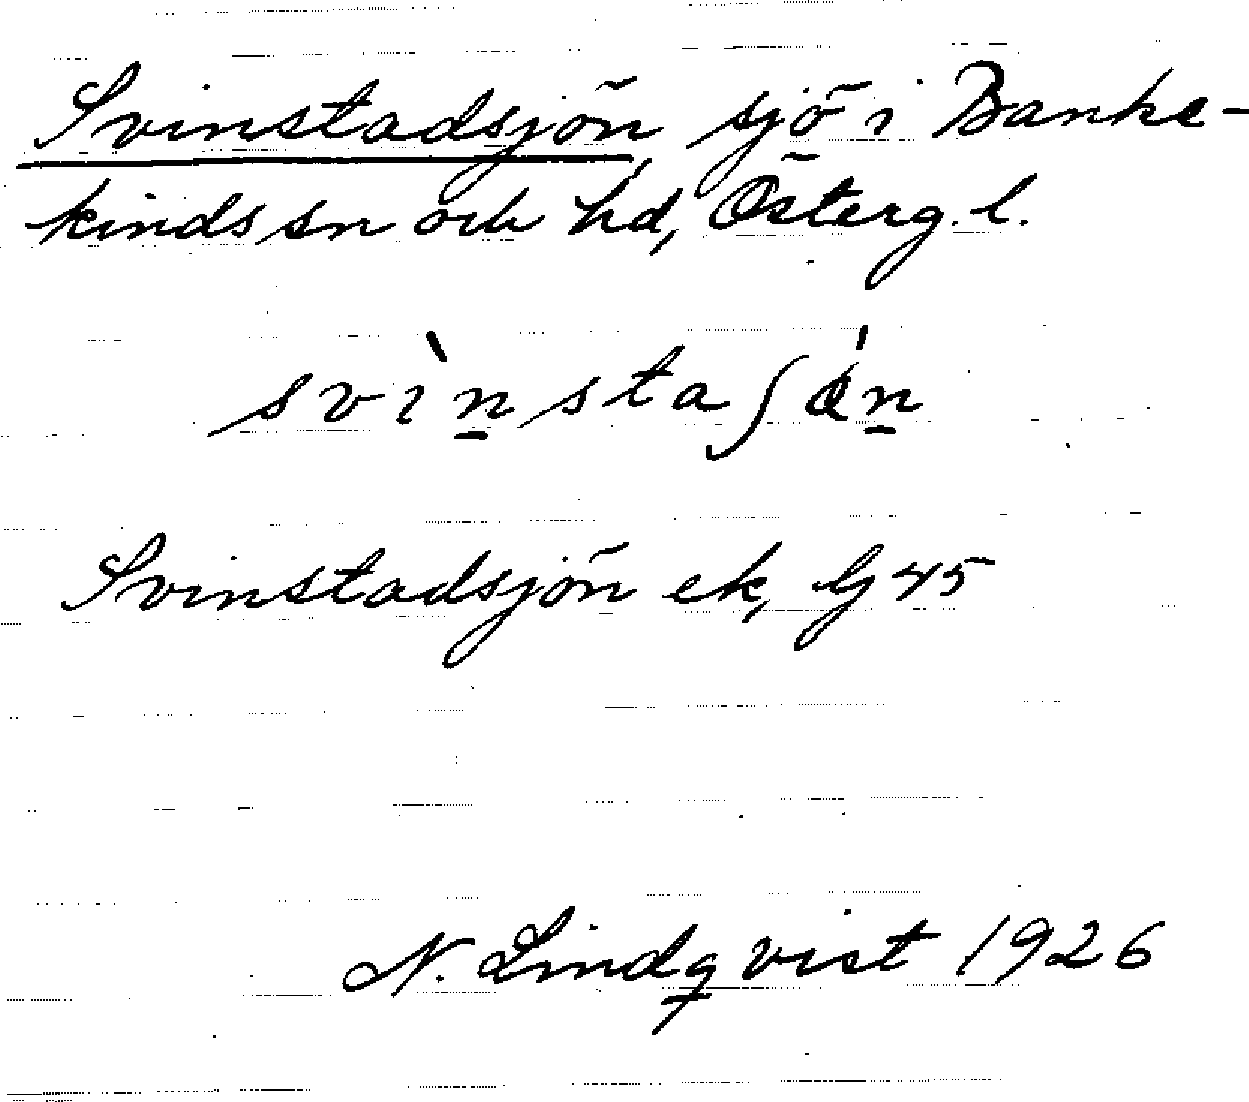 Svinstadsjön, sjö i Banke-
kinds sn och hd, Österg. l.
svìnstaʃǿn
Svinstadsjön ek, G 45
N. Lindqvist 1926